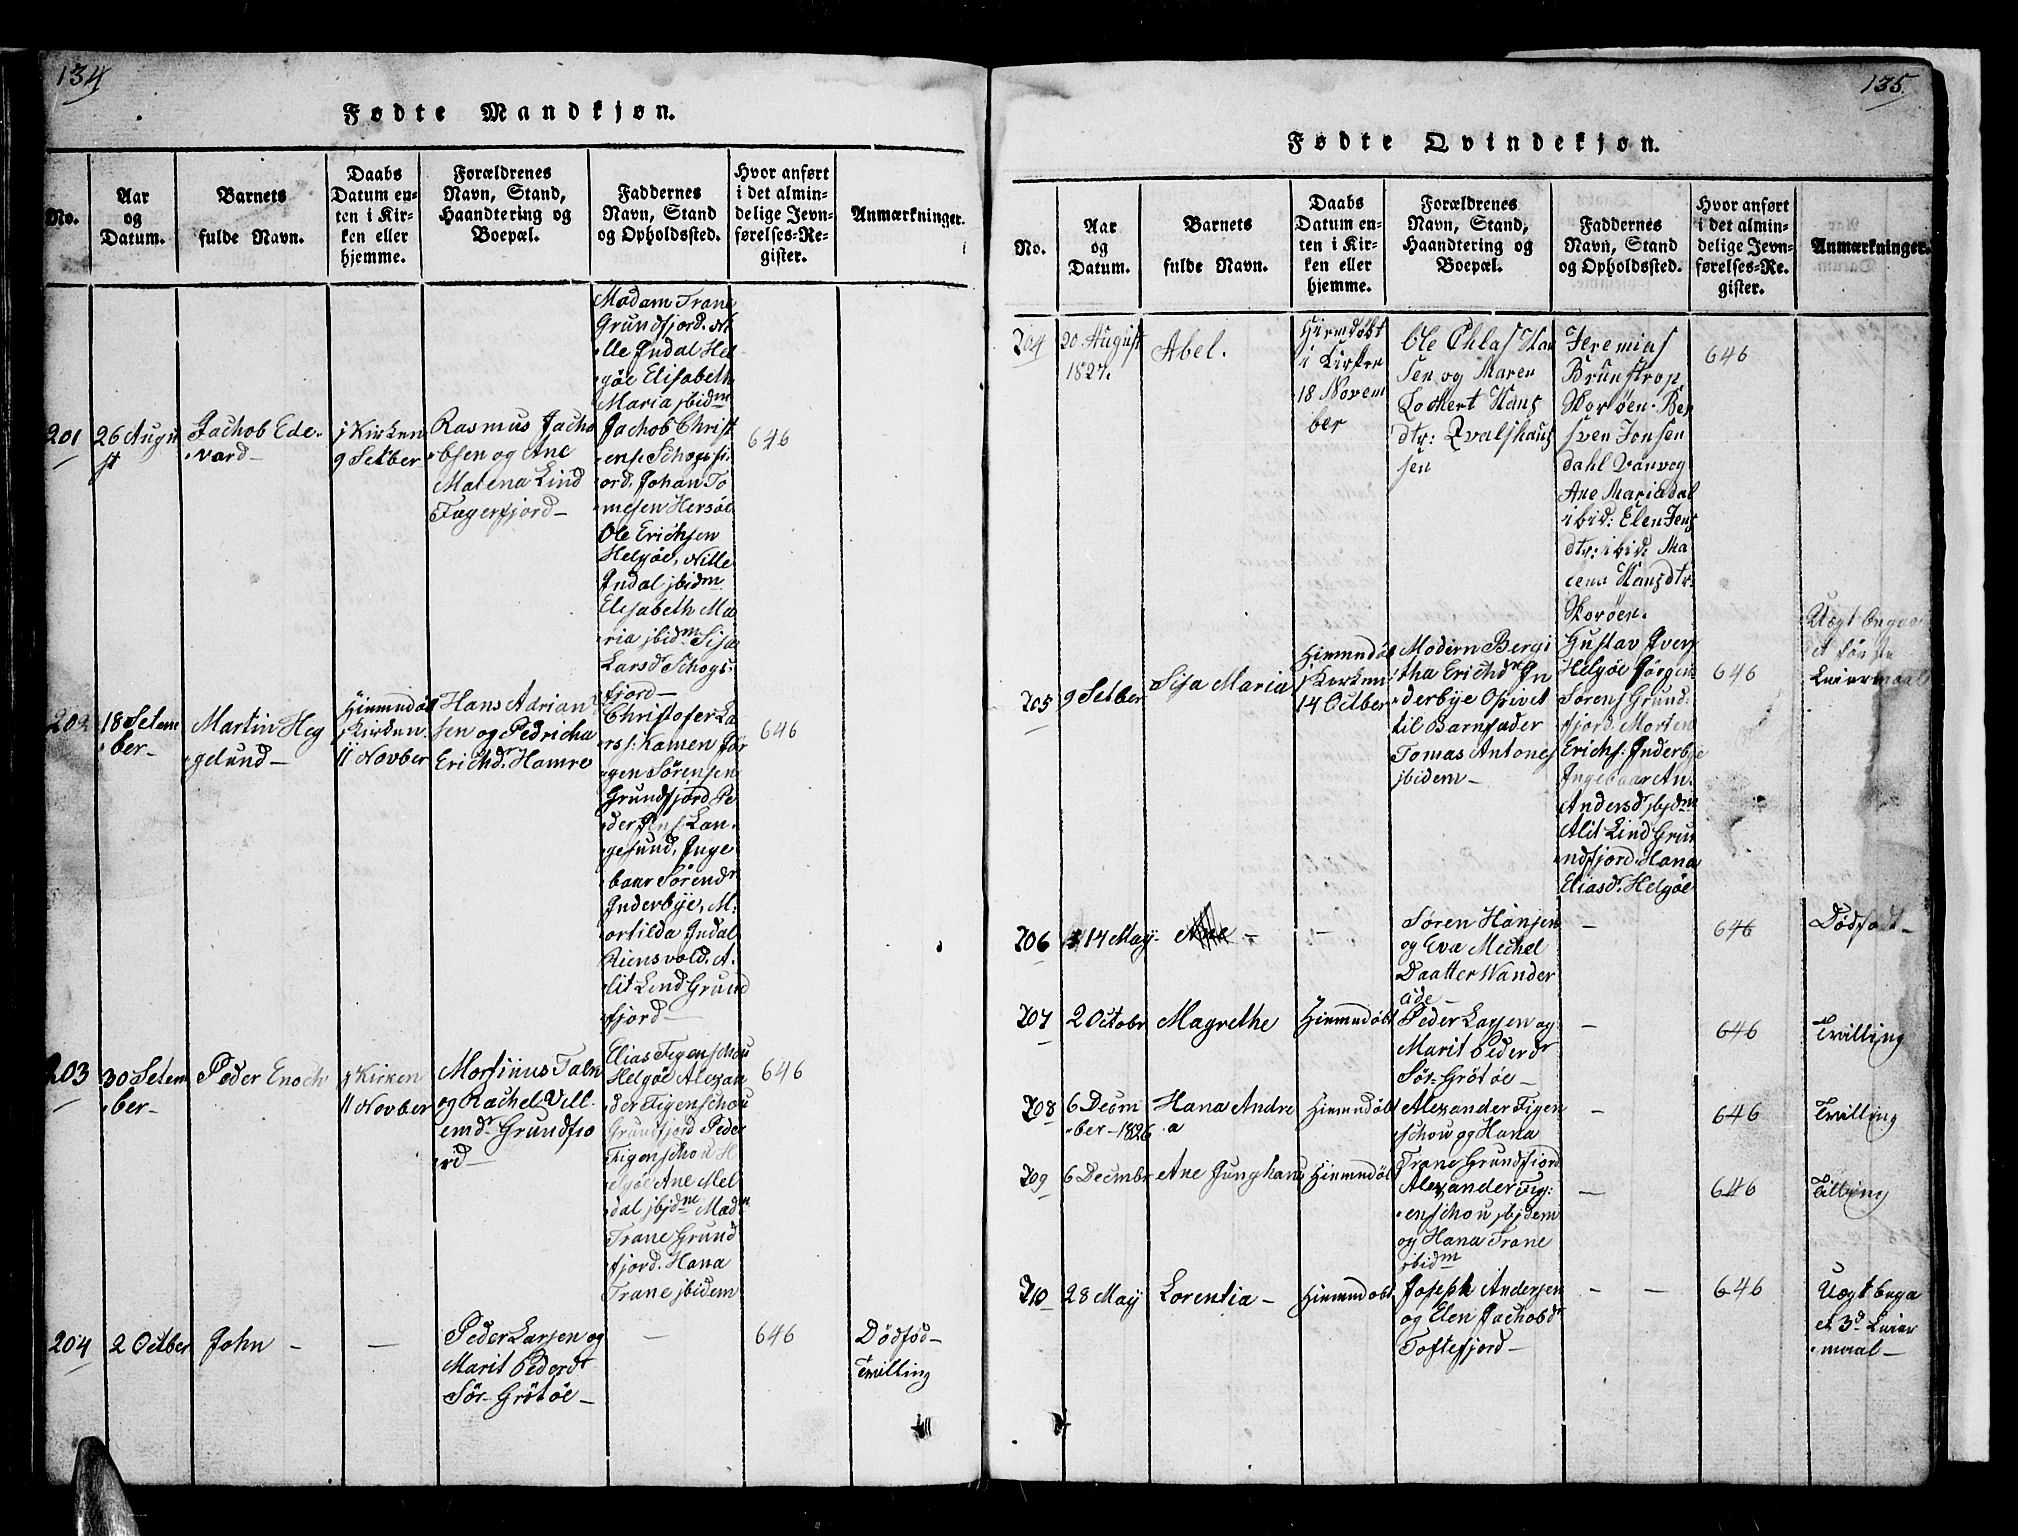 134
Fødte Mandkjøn.
No.
Aar
og
Datum.
Barnets
fulde Navn.
Daabs
Datum en-
ten i Kir-
ken eller
hjemme.
Forældrenes
Navn, Stand,
Haandtering og
Boepæl.
Faddernes
Navn, Stand
og Opholdssted.
Hvor anført
i det almin-
delige Jevn-
førelses-Re-
gister.
Anmærkninger.
201
26 Augu
st
Jachob Ede-
vard-
j Kirken
9 Setber
Rasmus Jacho
bsen og Ane
Malena Lind
Fagerfjord-
Madam Trane
Grundfjord. Ni
lle Jndal Hel
gøe Elisabeth
Maria jbidm
Jachob Christ
ens. Schogsfi
ord. Johan To
mesen Hersøe
Ole Erichsen
Helgøe, Nille
Jndal jbidm.
Elisabeth Ma
ria jbidm Sisa
Larsd Schogs-
fjord-
646
202
18 Setem
ber-
Martin Heg
gelund-
Hiemmdøb
j Kirken
11 Novber
Hans Adrian
sen og Pedricha
Erichdr Hamre
Christofer La
rs: Kamen Jør
gen Sørensen
Grundfjord Pe
der Jens. Lan-
gesund, Jnge
baar Sørendr
Jnderbye, M:
ortilda Jndal
Riensvold. A-
lit Lind Grund
fjord-
646
203
30 Setem
ber-
Peder Enoch
j Kirken
11 Novber
Mortinus Faln
og Rachel Vill-
emdr Grundfio
rd-
Elias Figenschou
Helgøe Alexan
der Figenschou
Grundfjord Peder
Figenschou H
elgøe Ane Mel
dal jbidm Madm
Trane Grund
fjord. Hana
Trane jbidem
646
204
2 Octber
John -
-
Peder Larsen og
Marit Pederdr
Sør-Grøtøe-
-
646
Dødfød-
Tvilling
135
Fødte Qvindekjøn.
No.
Aar
og
Datum.
Barnets
fulde Navn.
Daabs
Datum en-
ten i Kir-
ken eller
hjemme.
Forældrenes
Navn, Stand,
Haandtering og
Boepæl.
Faddernes
Navn, Stand
og Opholdssted.
Hvor anført
i det almin-
delige Jevn-
førelses-Re.
gister.
Anmærkninger.
204
20 August
1827.
Abel.
Hjemdøbt
i Kirken
18 Novem
ber
Ole Ohlas Han
sen og Maren
Lockert Hans
dtr: Qvalshaus
sen
Jeremias
Brunstrop
Skorøen. Ber
sven Jonsen
dahl Vanvog
Ane Maria dal
ibid: Elen Jens
dtr: ibid: Ma
lena Hansdtr:
Skorøen.
646
205
9 Setber
Sisa Maria
Hiemmdøb
j Kirken
14 Octber
Modern Bergi
tha Erichdr Jn
derbye Opivet
til Barnfader
Tomas Antones
jbidem-
Gustav Jvers
Helgøe Jørgen
Sørens Grund-
fjord. Morten
Erichs: Jnderbye
Jngebaar An.
Andersdr jbjdm
Alit Lind Grun
ndfjord. Hana
Eliasdr. Helgøe
646
Uægt begaa
et første
Leiermaal
206
14 May-
-
-
Søren Hansen
og Eva Mechel
Daatter Vander
eide-
-
646
Dødfødt-
207
2 Octobr
Magrethe
Hiemmdøbt
Peder Larsen og
Marit Pederdr
Sør-Grøtøe-
-
646
Tvilling
208
6 Decm
ber-1826
Hana Andre
a
Hiemmdøbt
Alexander Figen
schou og Hana
Trane Grundfiord
-
646
Tvilling
209
6 Decmbr
Ane Junghans
Hiemmdøbt
Alexander Fig:
enschou jbjdem
og Hana Trane
jbidm
-
646
Tvilling
210
28 May
Lorentia-
Hiemmdøbt
Joseph Andersen
og Elen Jachobdr
Toftefjord-
- -
646
Uægt bega
et 3d Leier
maal-